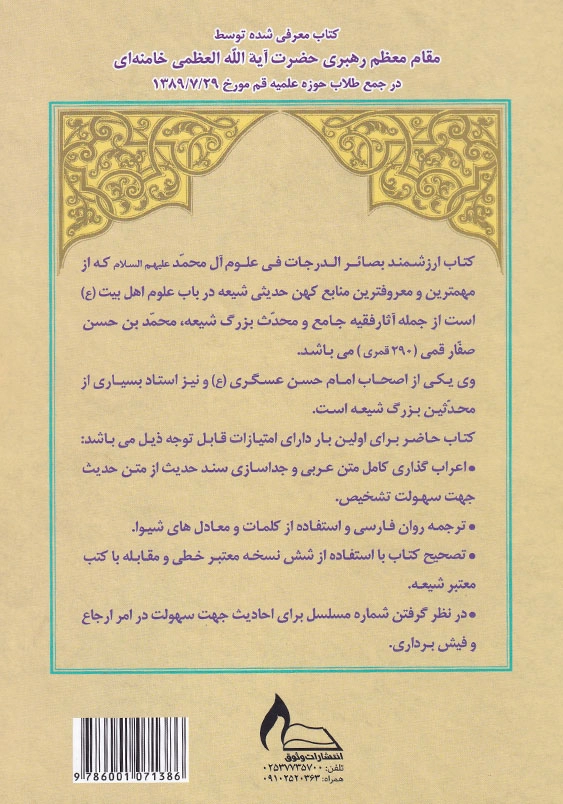 کتاب معرفی شده توسط
مقام معظم رهبری حضرت آیة الله العظمی خامنه‌ای
در جمع طلاب حوزه علمیه قم مورخ ۱۳۸۹/۷/۲۹
کتاب ارزشمند بصائر الدرجات فی علوم آل محمّد علیهم السلام که از
مهمترین و معروفترین منابع کهن حدیثی شیعه در باب علوم اهل بیت (ع)
است از جمله آثار فقیه جامع و محدّث بزرگ شیعه، محمّد بن حسن
صفّار قمی (۲۹۰ قمری) می باشد.
وی یکی از اصحاب امام حسن عسگری (ع) و نیز استاد بسیاری از
محدّثین بزرگ شیعه است.
کتاب حاضر برای اولین بار دارای امتیازات قابل توجه ذیل می باشد:
• اعراب گذاری کامل متن عربی و جداسازی سند حدیث از متن حدیث
جهت سهولت تشخیص.
• ترجمه روان فارسی و استفاده از کلمات و معادل های شیوا.
• تصحیح کتاب با استفاده از شش نسخه معتبر خطی و مقابله با کتب
معتبر شیعه.
• در نظر گرفتن شماره مسلسل برای احادیث جهت سهولت در امر ارجاع
و فیش برداری.
انتشارات وثوق
تلفن: ۰۲۵۳۷۷۳۵۷۰۰
همراه: ۰۹۱۰۲۵۲۰۳۶۳
9 786001 071386